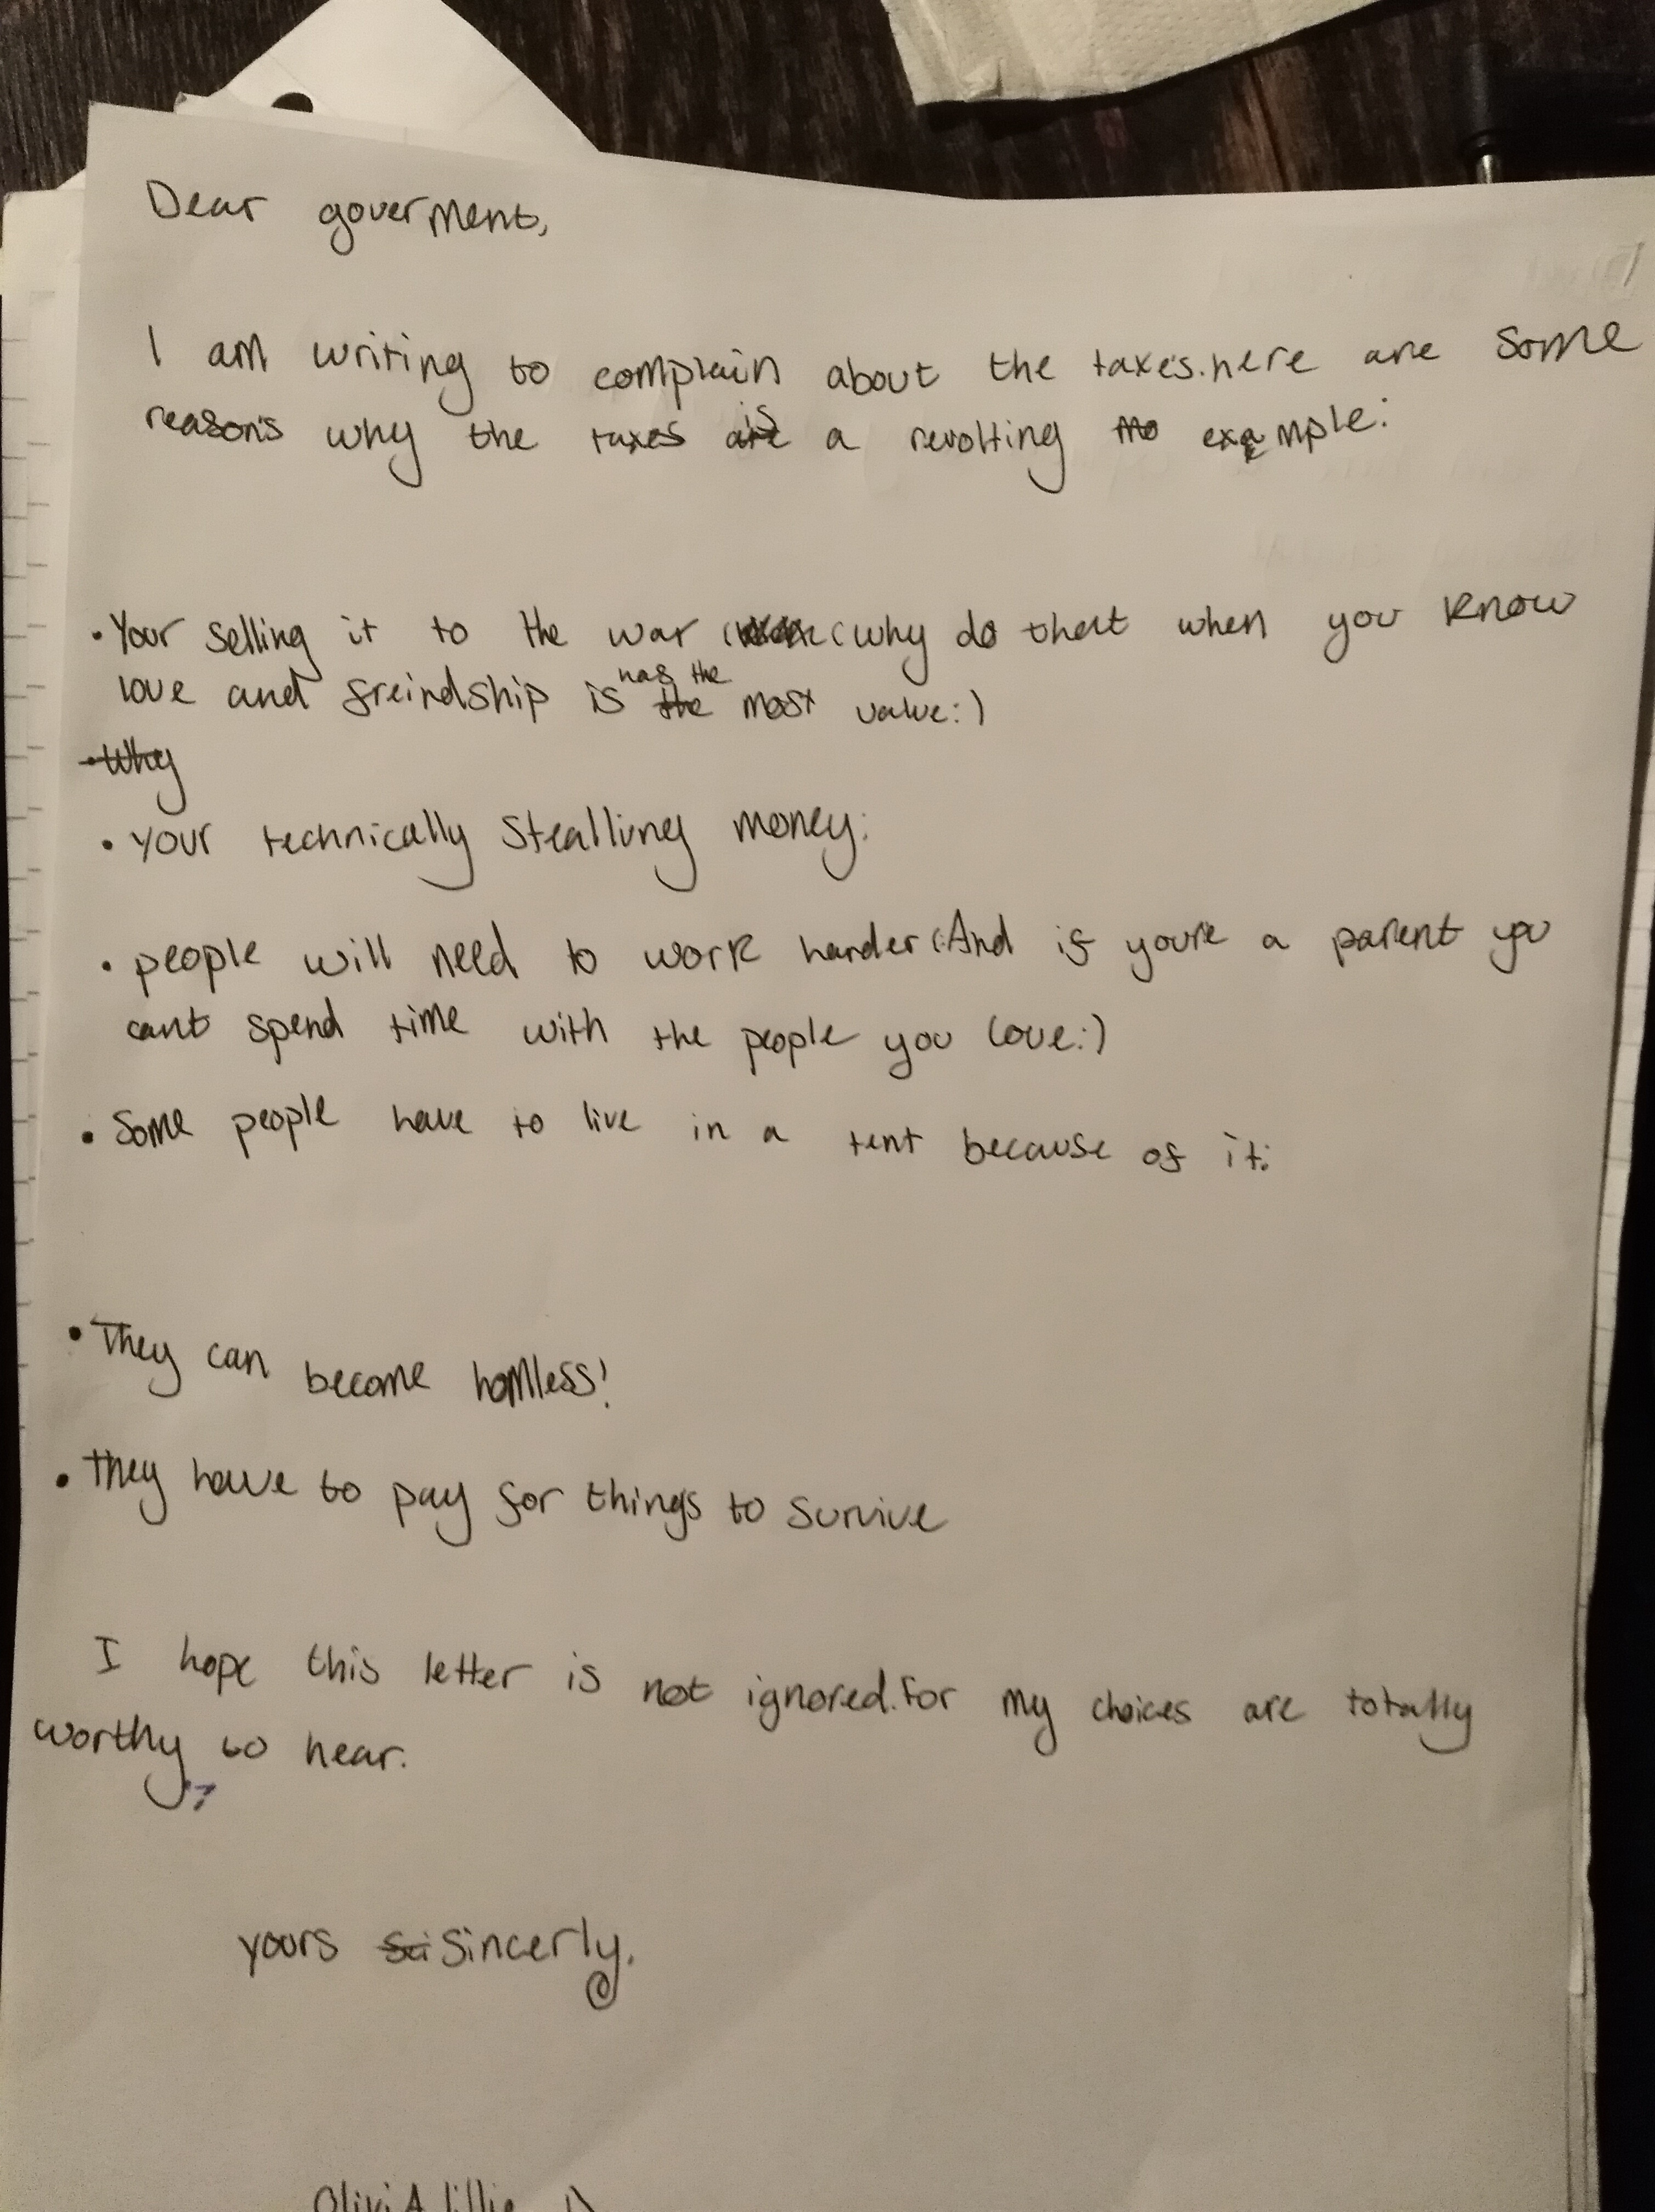 Dear goverment,
I am writing to complain about the taxes. here are some
reasons why the taxes is a revolting example:
• Your selling it to the war (why do that when you know
love and freindship is has the most value:)
• Why
• Your technically stealling money:
• people will need to work harder (And if you're a parent you
cant spend time with the people you love:)
• Some people have to live in a tent because of it:
• They can become homless!
• They have to pay for things to survive
I hope this letter is not ignored. For my choices are totally
worthy to hear.
yours sincerly,